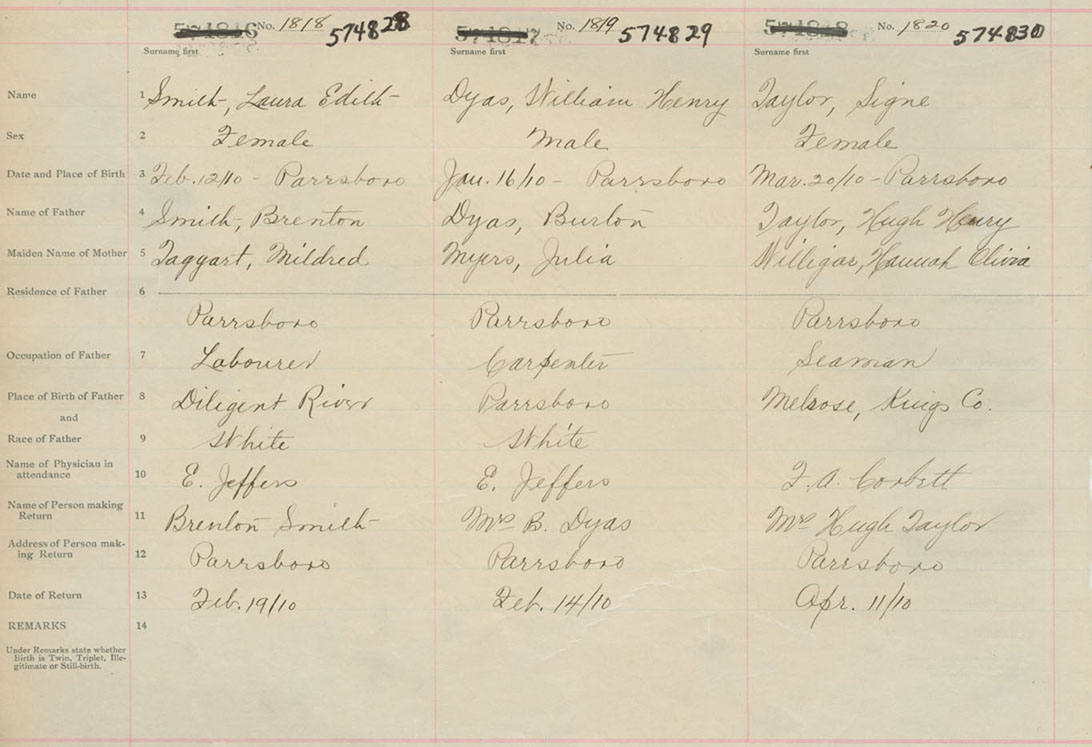 No. 1818 574828 No. 1819 574829 No. 1820 574830
Surname first Surname first Surname first
Name 1 Smith, Laura Edith Dyas, William Henry Taylor, Signe
Sex 2 Female Male Female
Date and Place of Birth 3 Feb. 12/10 - Parrsboro Jan. 16/10 - Parrsboro Mar. 20/10 - Parrsboro
Name of Father 4 Smith, Brenton Dyas, Burton Taylor, Hugh Henry
Maiden Name of Mother 5 Taggart, Mildred Myers, Julia Willigar, Hannah Olivia
Residence of Father 6
Parrsboro Parrsboro Parrsboro
Occupation of Father 7 Labourer Carpenter Seaman
Place of Birth of Father 8 Diligent River Parrsboro Melrose, Kings Co.
and
Race of Father 9 White White
Name of Physician in
attendance 10 E. Jeffers E. Jeffers F. A. Corbett
Name of Person making
Return 11 Brenton Smith Mrs B. Dyas Mrs Hugh Taylor
Address of Person mak-
ing Return 12 Parrsboro Parrsboro Parrsboro
Date of Return 13 Feb. 19/10 Feb. 14/10 Apr. 11/10
REMARKS 14
Under Remarks state whether
Birth is Twin, Triplet, Ille-
gitimate or Still-birth.